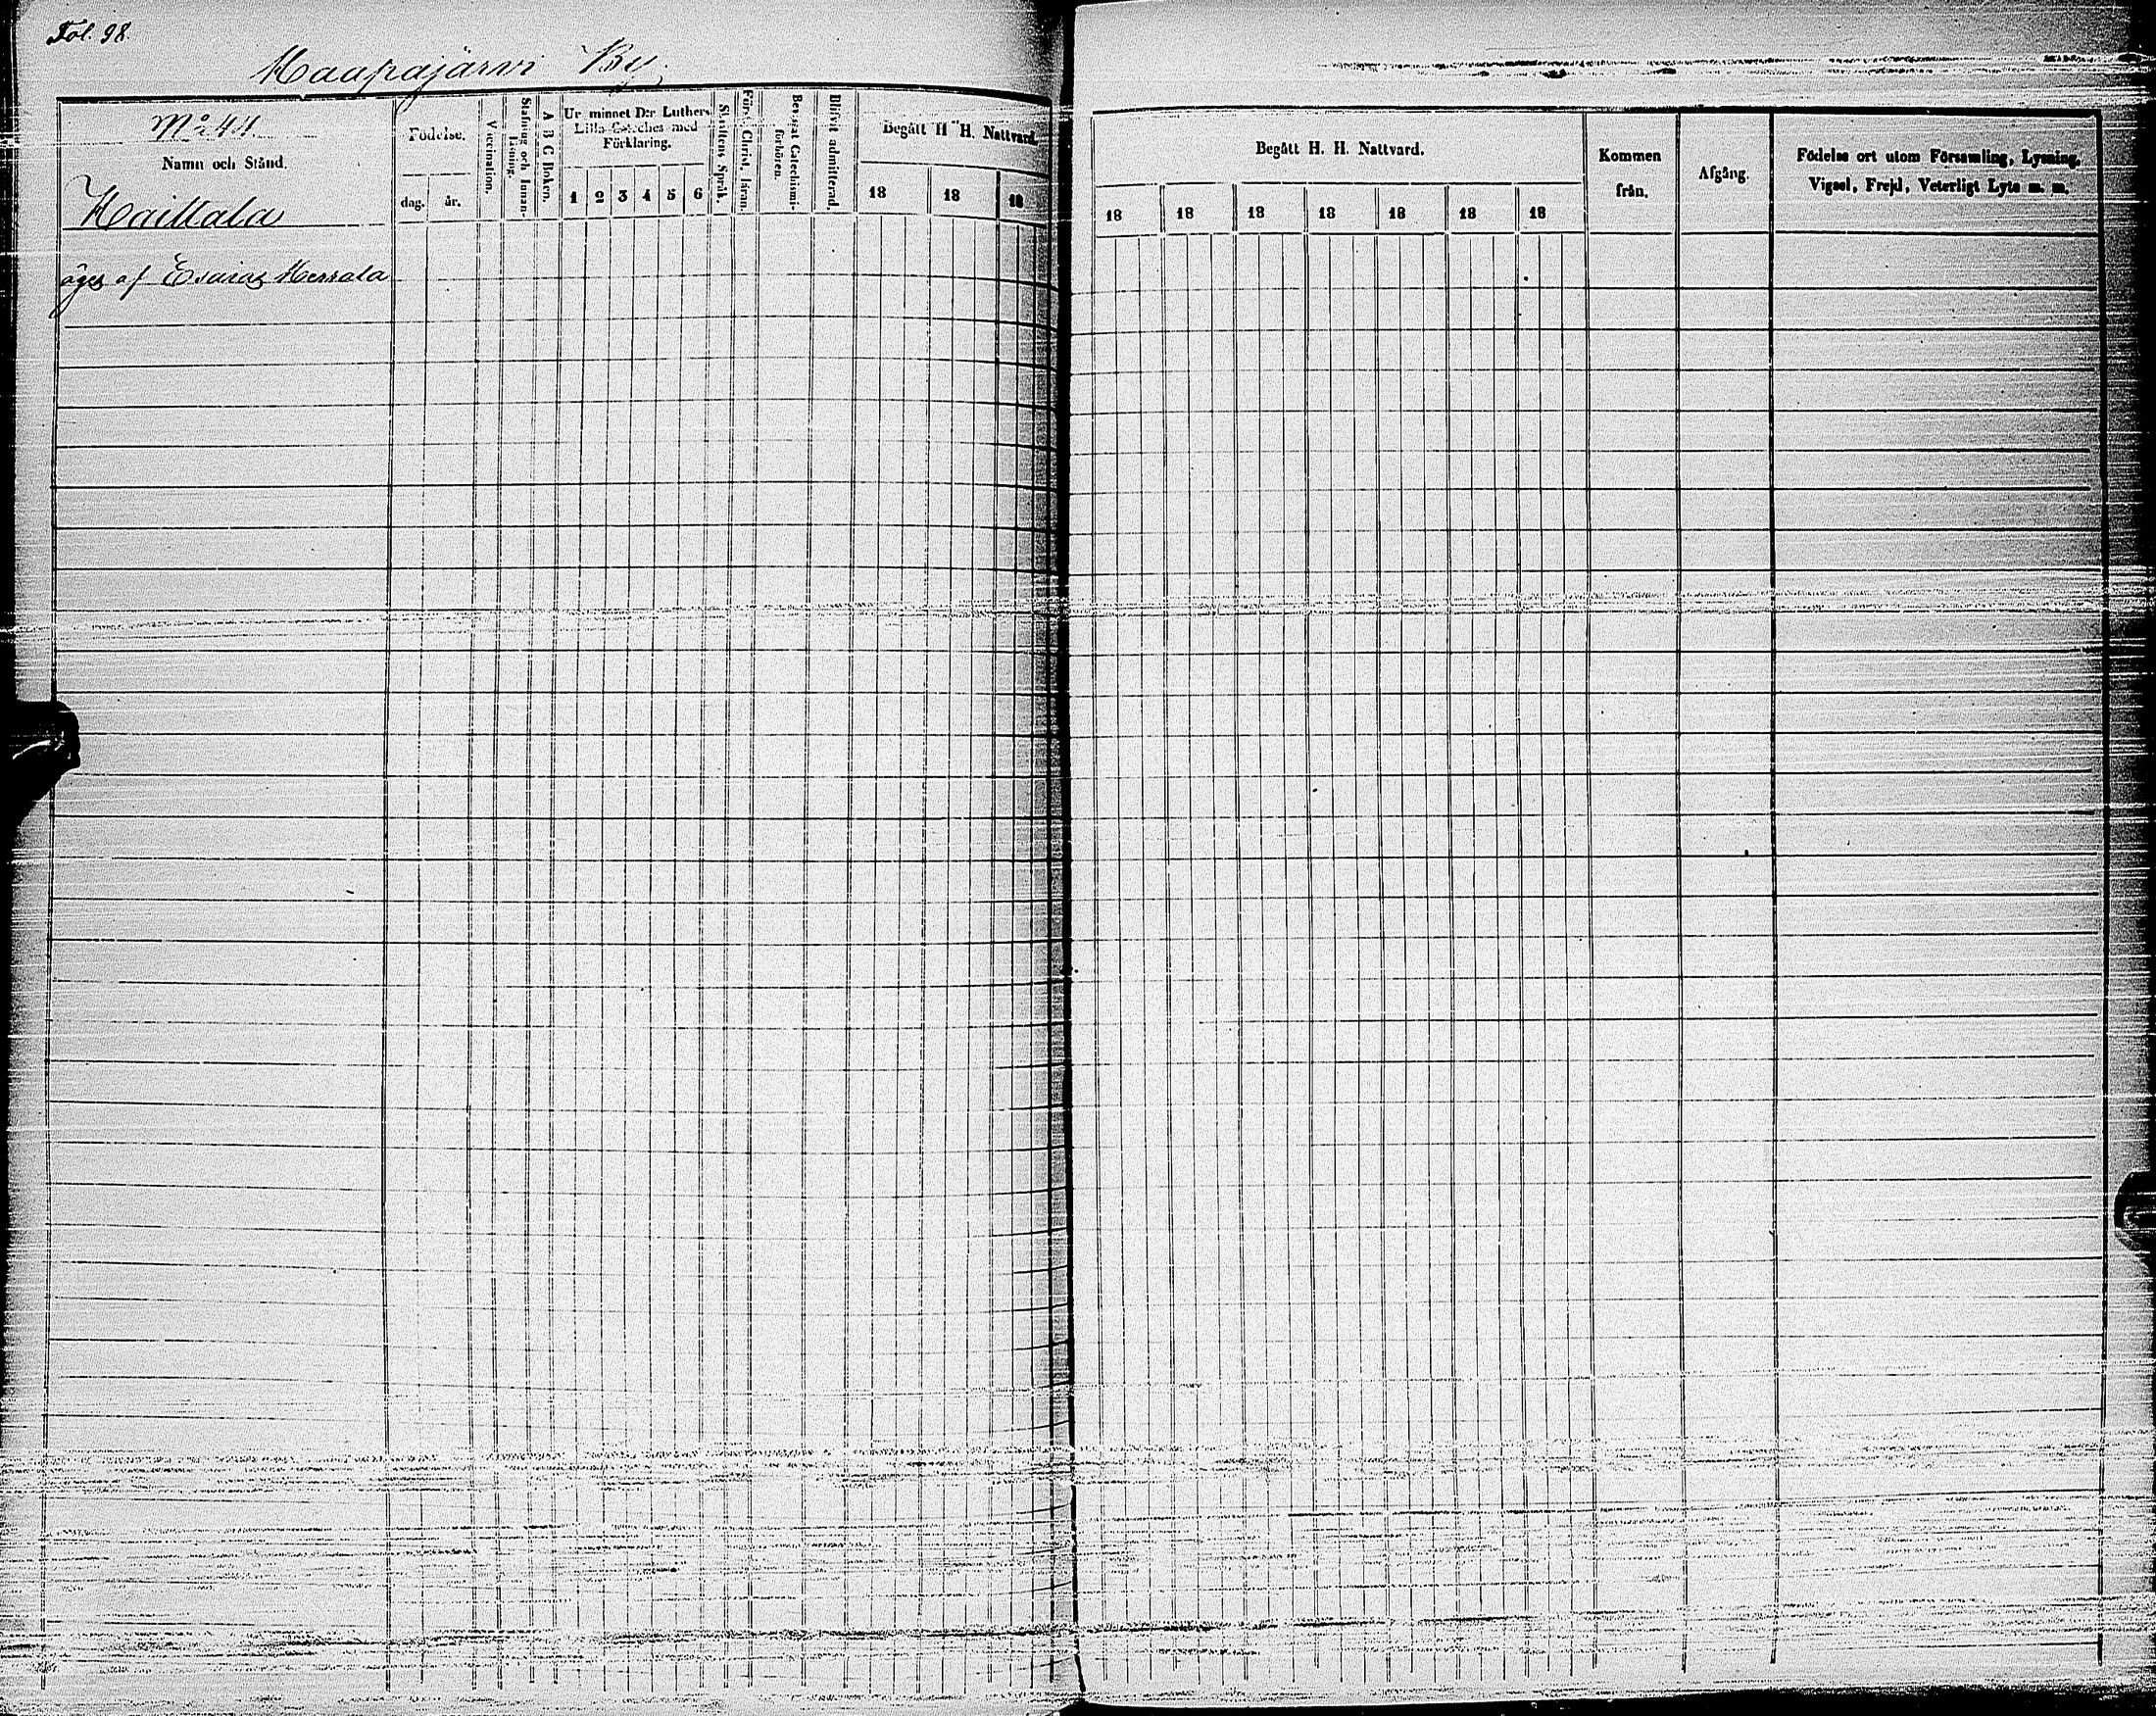 Fol. 98.
Haapajärvi By.
No 44.
Namn och Stånd.
Födelse.
dag. år.
Vaccination.
Stafning och Innan-
läsning.
A B C Boken.
Ur minnet D:r Luthers
Lilla Cateches med
Förklaring.
1 2 3 4 5 6
Skriftens Språk.
Först. Christ. läran.
Bevistat Catechismi-
förhören.
Blifvit admitterad.
Begått H. H. Nattvard.
18 18 18
Haikala
äges af Esaias
Begått H. H. Nattvard.
18 18 18 18 18 18 18
Kommen
från.
Afgång.
Födelse ort utom Församling, Lysning,
Vigsel, Frejd, Veterligt Lyte m. m.